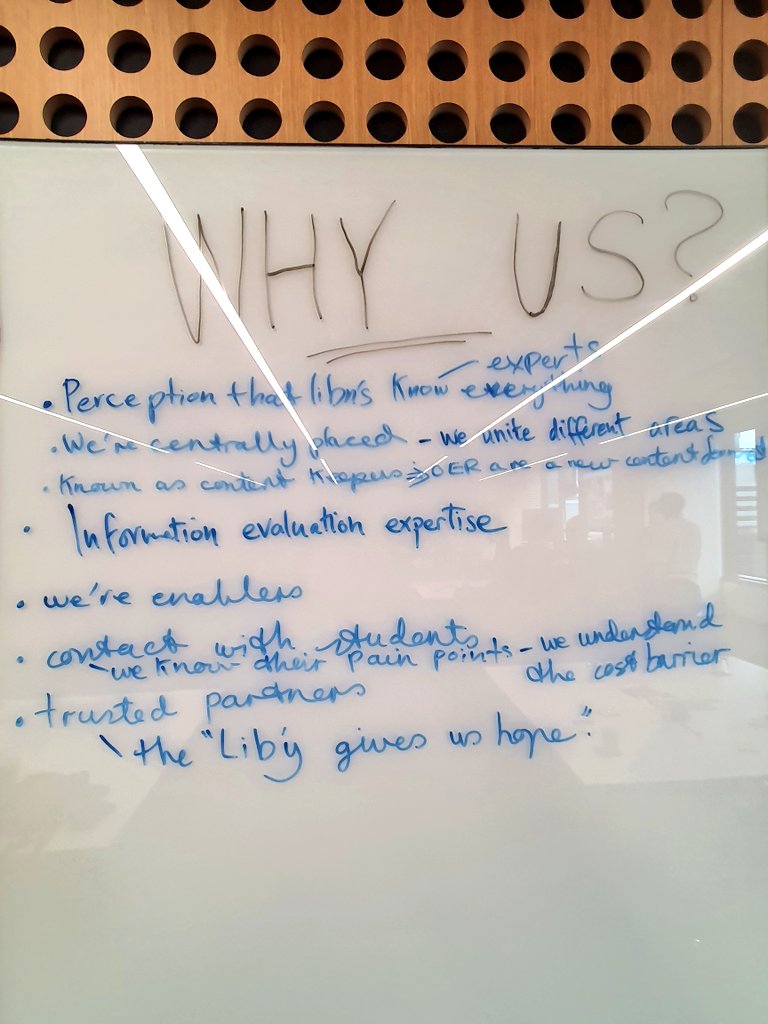 WHY US?
experts
• Perception that libn's know everything
• We're centrally placed - we unite different areas
• Known as content keepers → OER are a new content format
• Information evaluation expertise
• we're enablers
• contact with students
\ we know their pain points - we understand
the cost barrier
• trusted partners
\ the "Lib'y gives us hope".